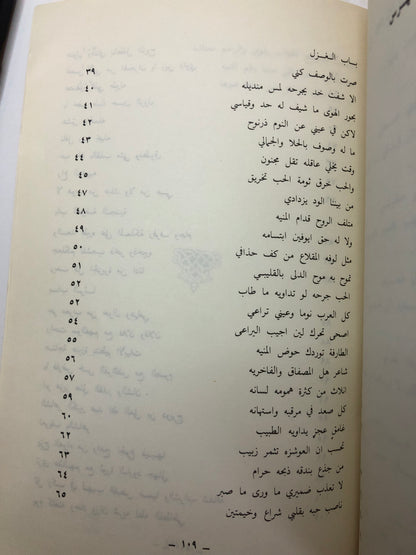 بـاب الـغـزل
صرت بالوصف كني ٣٩
الا شفت خد يجرحه لمس منديله ٤٠
بجور الهوى ما شيف له حد وقياسي ٤١
لاكن في عيني عن النوم ذرنوح ٤٢
ما له وصوف بالحلا والجمالي ٤٣
وقت يخلي عاقله تقل مجنون ٤٤
والحب خرق ثومة الحب تخريق ٤٥
من بيننا الود يزدادي ٤٧
متلف الروح قدام المنيه ٤٨
ولا له حق ابوفين ابتسامه ٤٩
مثل لوفه المقلاع من كف حذافي ٥٠
تموح به موح الدلى بالقليبي ٥١
الحب جرحه لو تداويه ما طاب ٥٢
كل العرب نوما وعيني تراعي ٥٢
اضحى تحرك لين اجيب اليراعى ٥٥
الطارفة توردك حوض المنيه ٥٦
شاعر هل المصفاق والفاخريه ٥٥
انلات من كثرة همومه لسانه ٥٧
كل صعد في مرقبه واستهانه ٥٩
غامقٍ عجزٍ يداويه الطبيب ٦٠
تحسب ان العوشزه تثمر زبيب ٦٢
من جذع بندقه ذبحه حرام ٦٣
لا تعذب ضميري ما ورى ما صبر ٦٤
ناصب حبه بقلبي شراع وخيمتين ٦٥
– ١٠٩ –